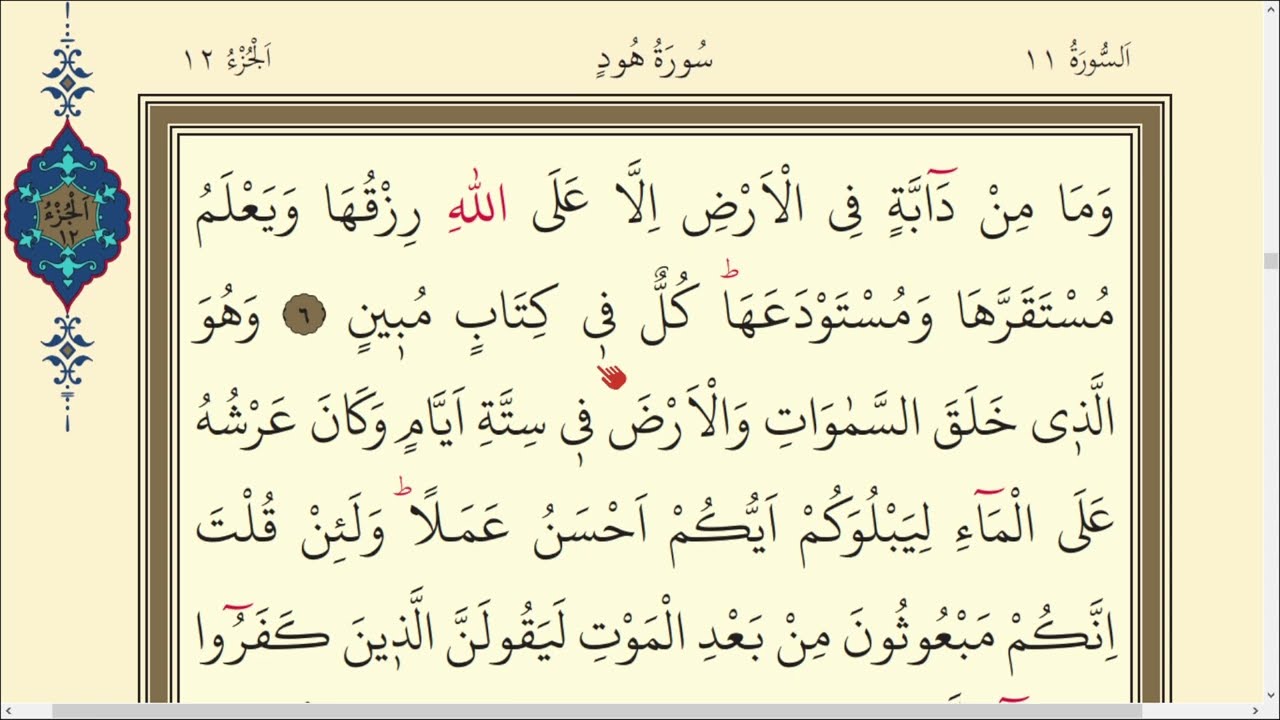 اَلسُّورَةُ ١١ سُورَةُ هُودٍ اَلْجُزْءُ ١٢
وَمَا مِنْ دَٓابَّةٍ فِى الْاَرْضِ اِلَّا عَلَى اللّٰهِ رِزْقُهَا وَيَعْلَمُ
مُسْتَقَرَّهَا وَمُسْتَوْدَعَهَاۜ كُلٌّ فٖى كِتَابٍ مُبٖينٍ ٦ وَهُوَ
الَّذٖى خَلَقَ السَّمٰوَاتِ وَالْاَرْضَ فٖى سِتَّةِ اَيَّامٍ وَكَانَ عَرْشُهُ
عَلَى الْمَٓاءِ لِيَبْلُوَكُمْ اَيُّكُمْ اَحْسَنُ عَمَلًاؕ وَلَئِنْ قُلْتَ
اِنَّكُمْ مَبْعُوثُونَ مِنْ بَعْدِ الْمَوْتِ لَيَقُولَنَّ الَّذٖينَ كَفَرُٓوا
اَلْجُزْءُ
١٢